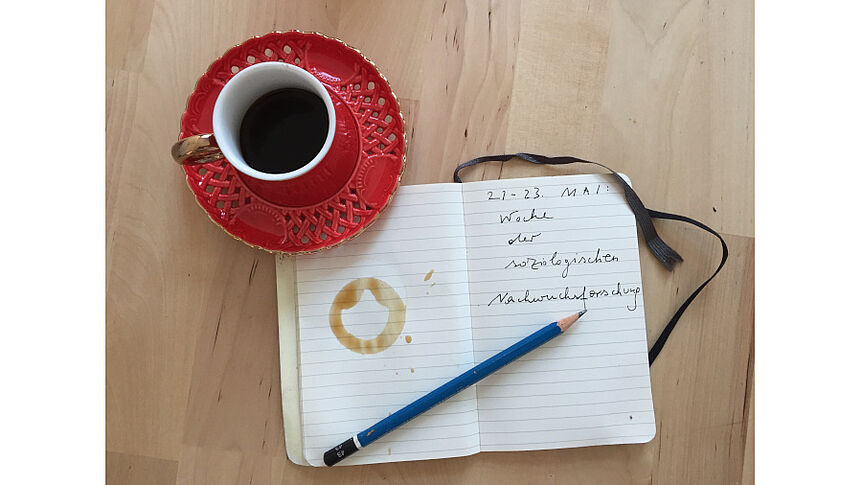 21-23. MAI:
Woche
der
soziologischen
Nachwuchsforschung